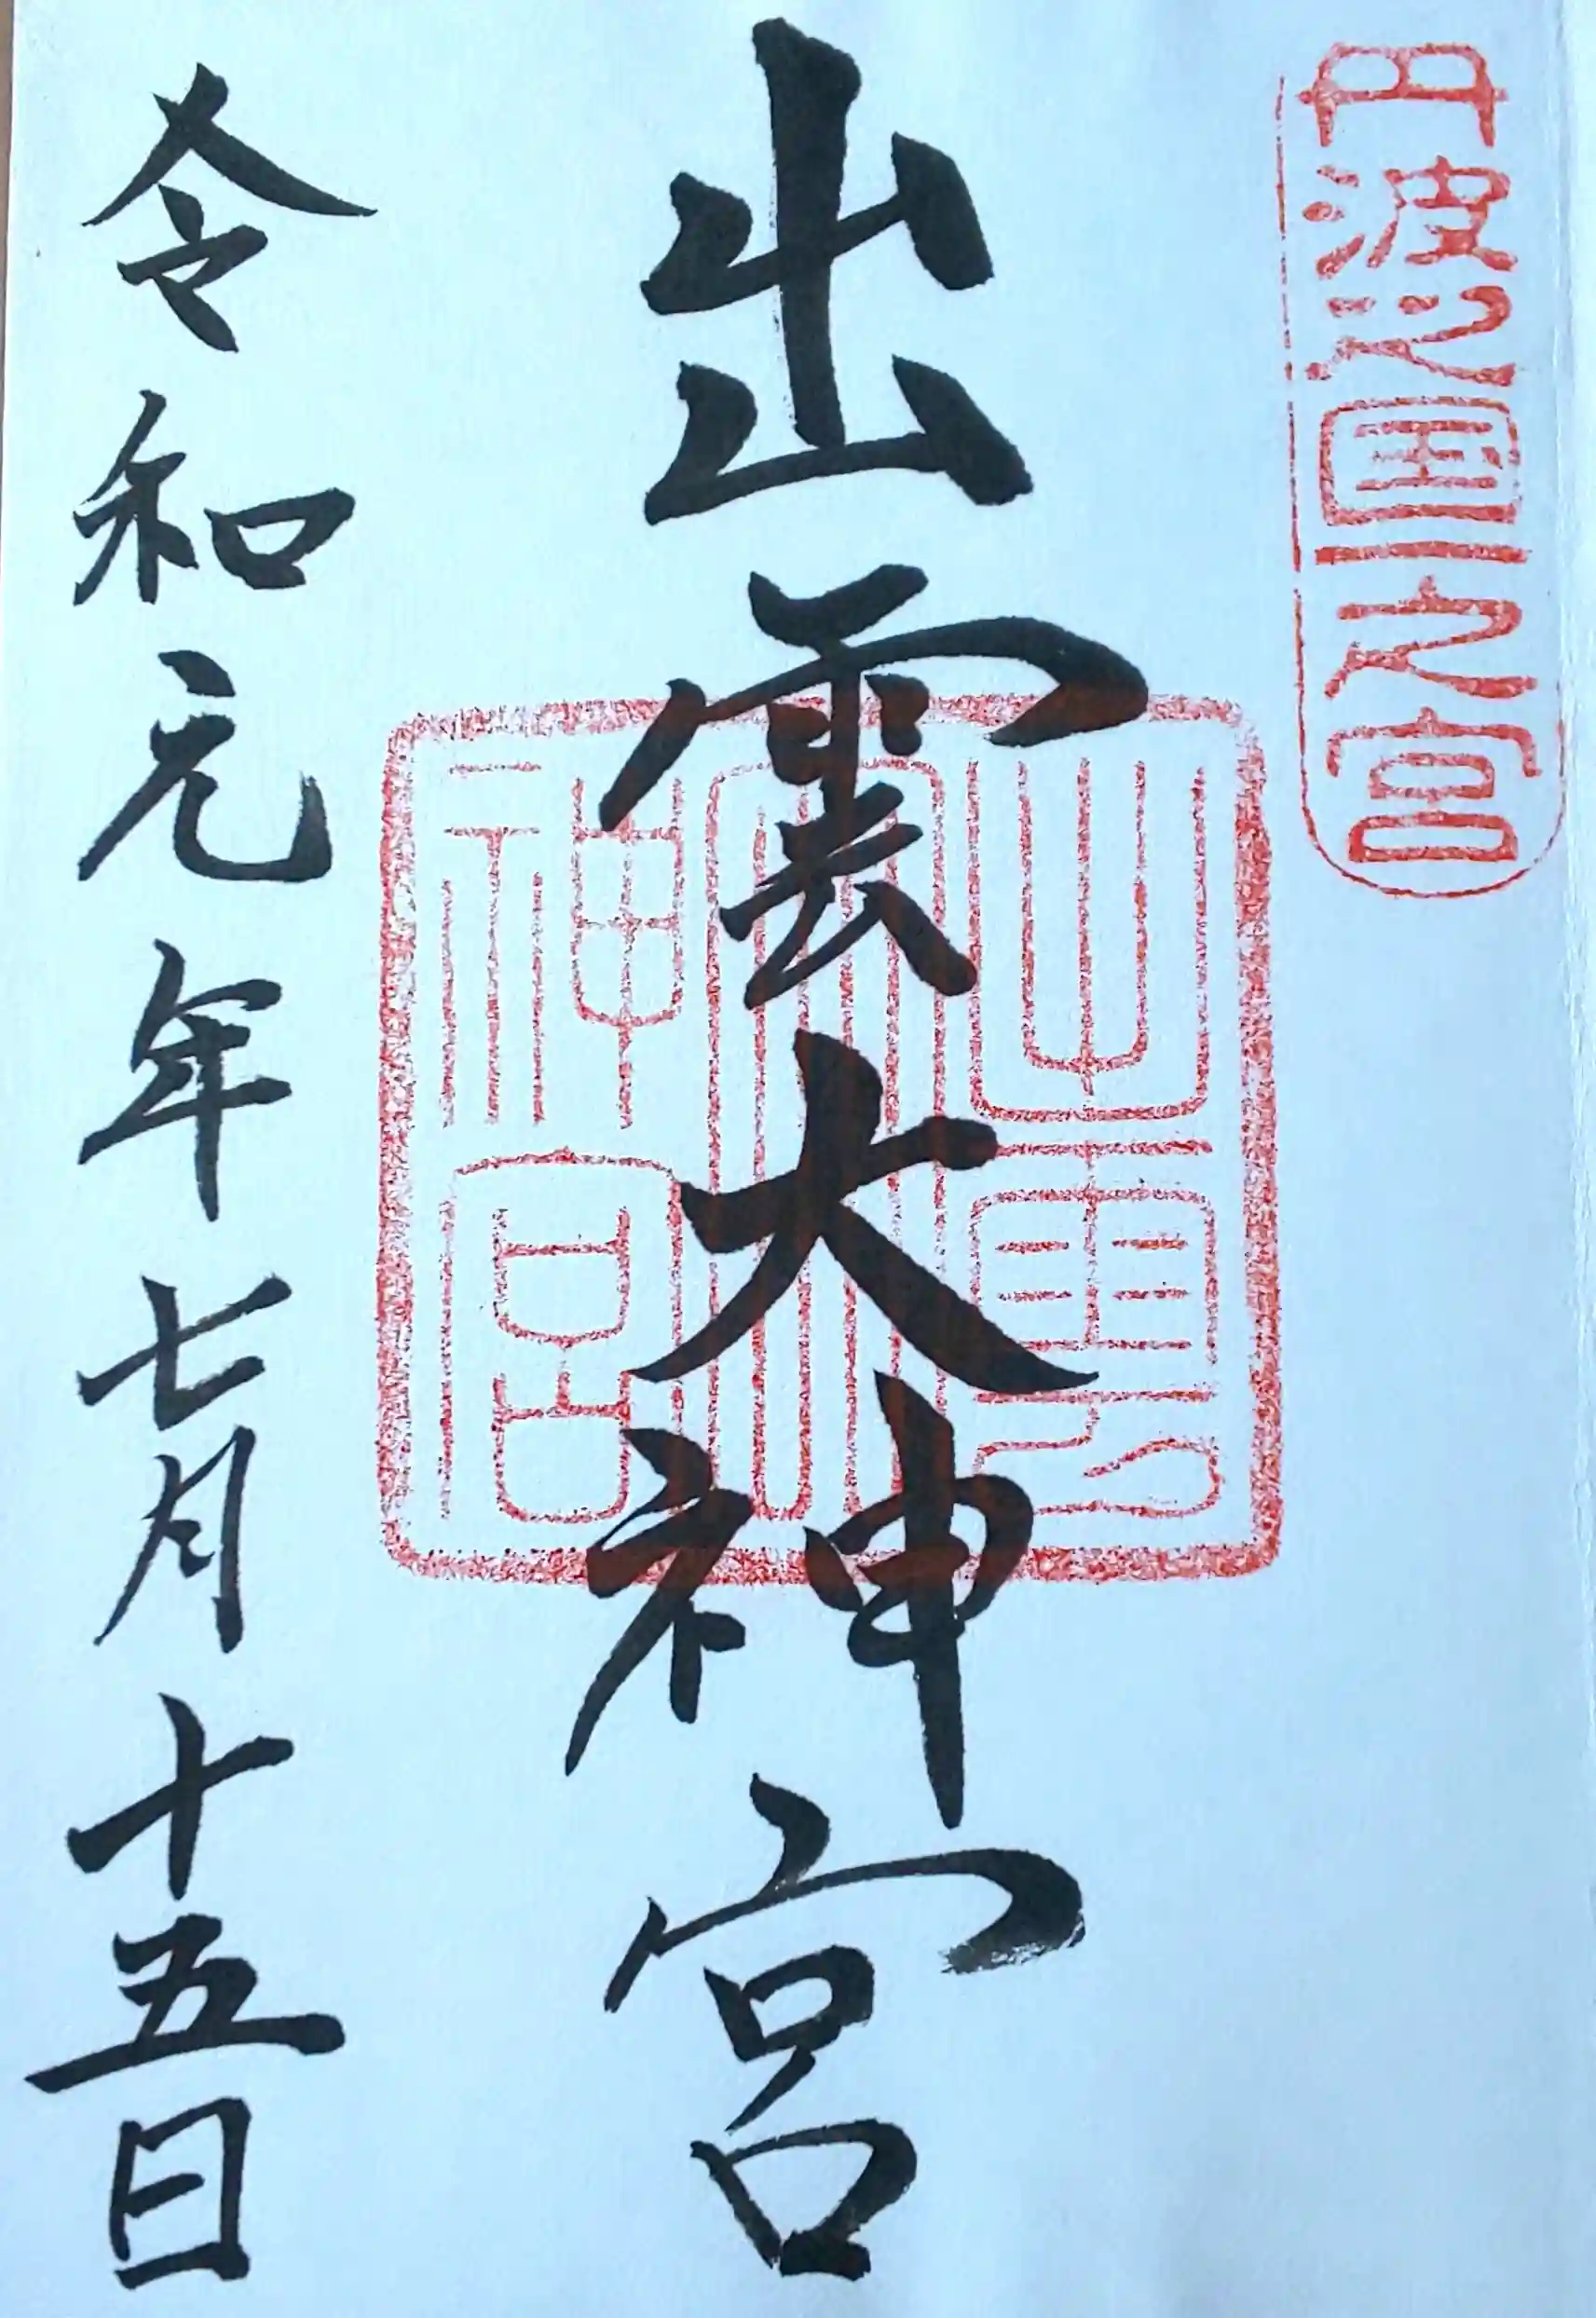 丹波之国一之宮
出雲大神宮
出雲大神宮
令和元年七月十五日